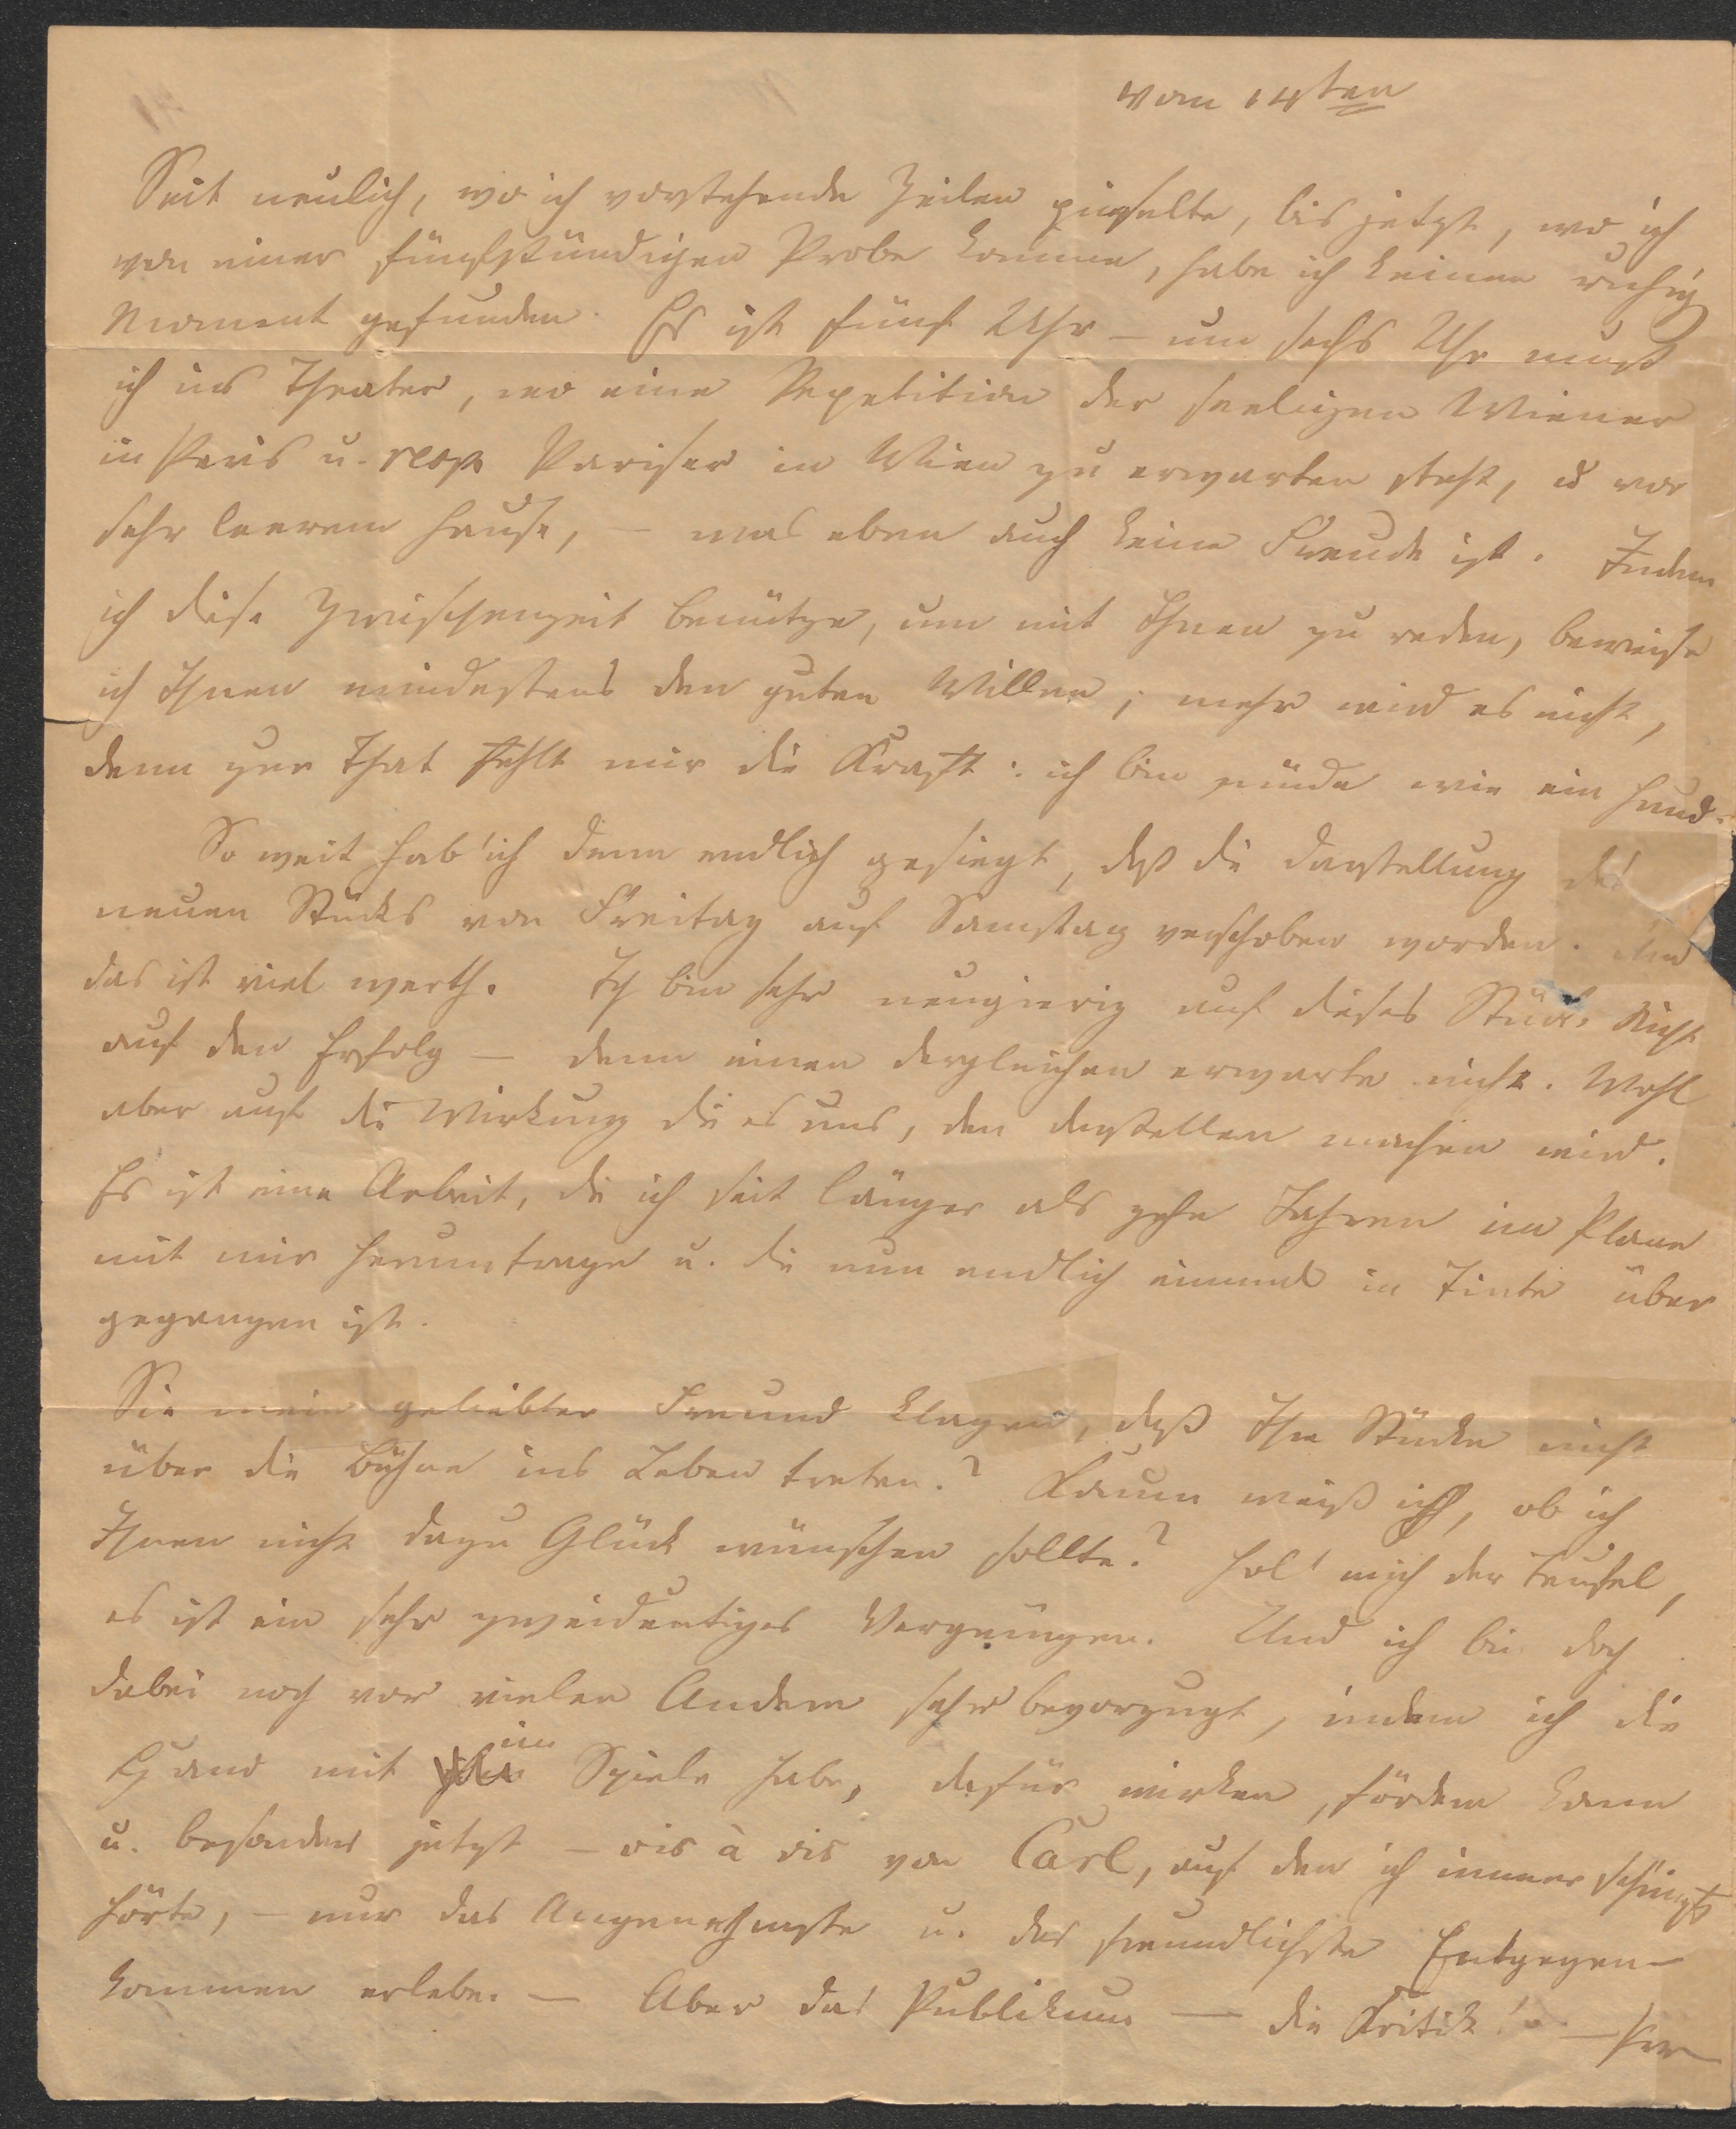 vom 14ten
Seit neulich, wo ich vorstehende Zeilen pinselte, bis jetzt, wo ich
von einer fünfstündigen Probe komme, habe ich keinen ruhig
Moment gefunden. Es ist fünf Uhr – um sechs Uhr muß
ich ins Theater, wo eine Repetition der seeligen Wiener
in Paris u. resp Pariser in Wien zu erwarten steht, u vor
sehr leerem Hause, – was eben auch keine Freude ist. Indem
ich diese Zwischenzeit benütze, um mit Ihnen zu reden, beweise
ich Ihnen mindestens den guten Willen; mehr wird es nicht,
denn zur That fehlt mir die Kraft: ich bin müde wie ein Hund.
So weit hab' ich denn endlich gesiegt, daß die Darstellung des
neuen Stücks von Freitag auf Samstag verschoben worden. Und
das ist viel werth. Ich bin sehr neugierig auf dieses Stück. Nicht
auf den Erfolg – denn einen dergleichen erwarte nicht. Wohl
aber auf die Wirkung die es uns, den Darstellern machen wird.
Es ist eine Arbeit, die ich seit länger als zehn Jahren im Plane
mit mir herumtrage u. die nun endlich einmal in Tinte über
gegangen ist.
Sie mein geliebter Freund klagen, daß Ihre Stücke nicht
über die Bühne ins Leben treten? Kaum weiß ich, ob ich
Ihnen nicht dazu Glück wünschen sollte? Hol' mich der Teufel,
es ist ein sehr zweideutiges Vergnügen. Und ich bin doch
dabei noch vor vielen Andern sehr bevorzugt, indem ich die
Hand mit im Spiele habe, dafür wirken, fördern kann
u. besonders jetzt – vis à vis von Carl, auf den ich immer schimpfen
hörte, – nur das Angenehmste u. das freundlichste Entgegen-
kommen erlebe. – Aber das Publikum – die Kritik! –